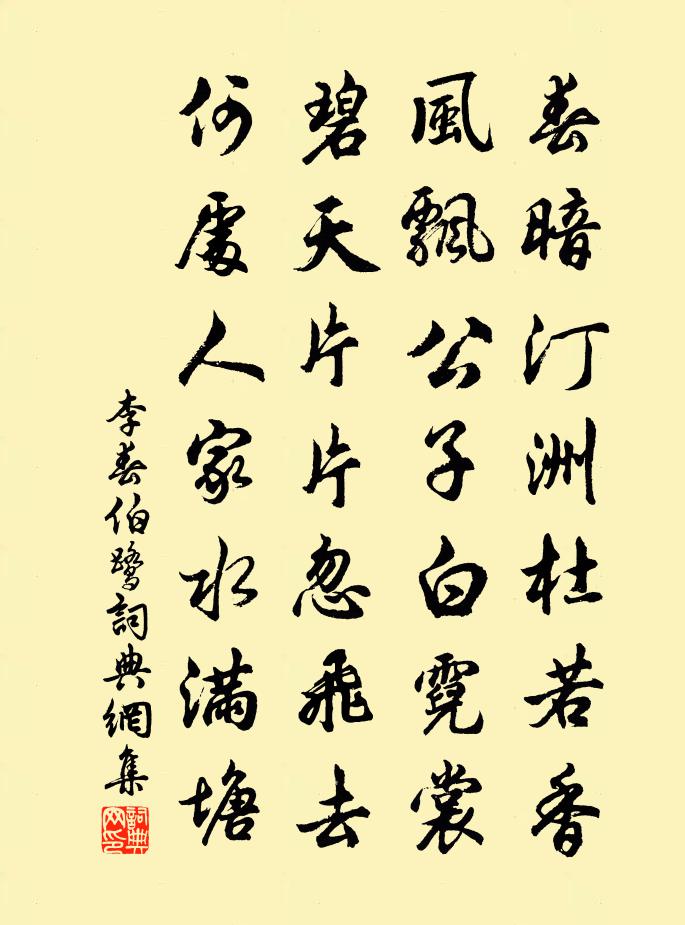 春暗汀洲杜若香
風飄公子白霓裳
碧天片片忽飛去
何處人家水滿塘
李春伯鷺詞典網集
詞典网印